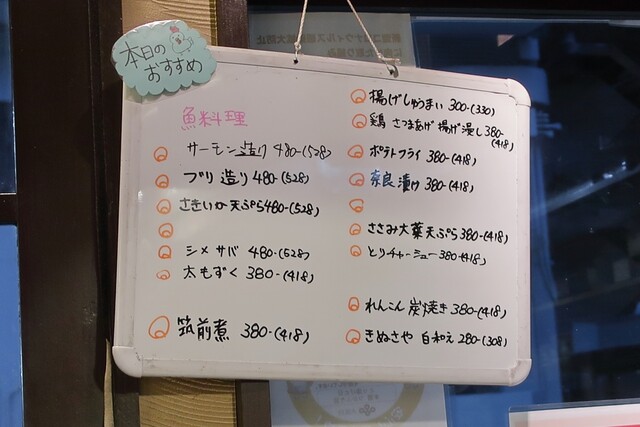 本日の
おすすめ
魚料理
サーモン造り 480-(528)
ブリ 造り 480-(528)
さきいか天ぷら480-(528)
シメサバ 480-(528)
太もずく 380-(418)
筑前煮 380-(418)
揚げしゅうまい 300-(330)
鶏 さつまあげ 揚げ浸し 380-
(418)
ポテトフライ 380-(418)
奈良漬け 380-(418)
ささみ大葉天ぷら380-(418)
とりチャーシュー380-(418)
れんこん 炭焼き 380-(418)
きぬさや 白和え 280-(308)